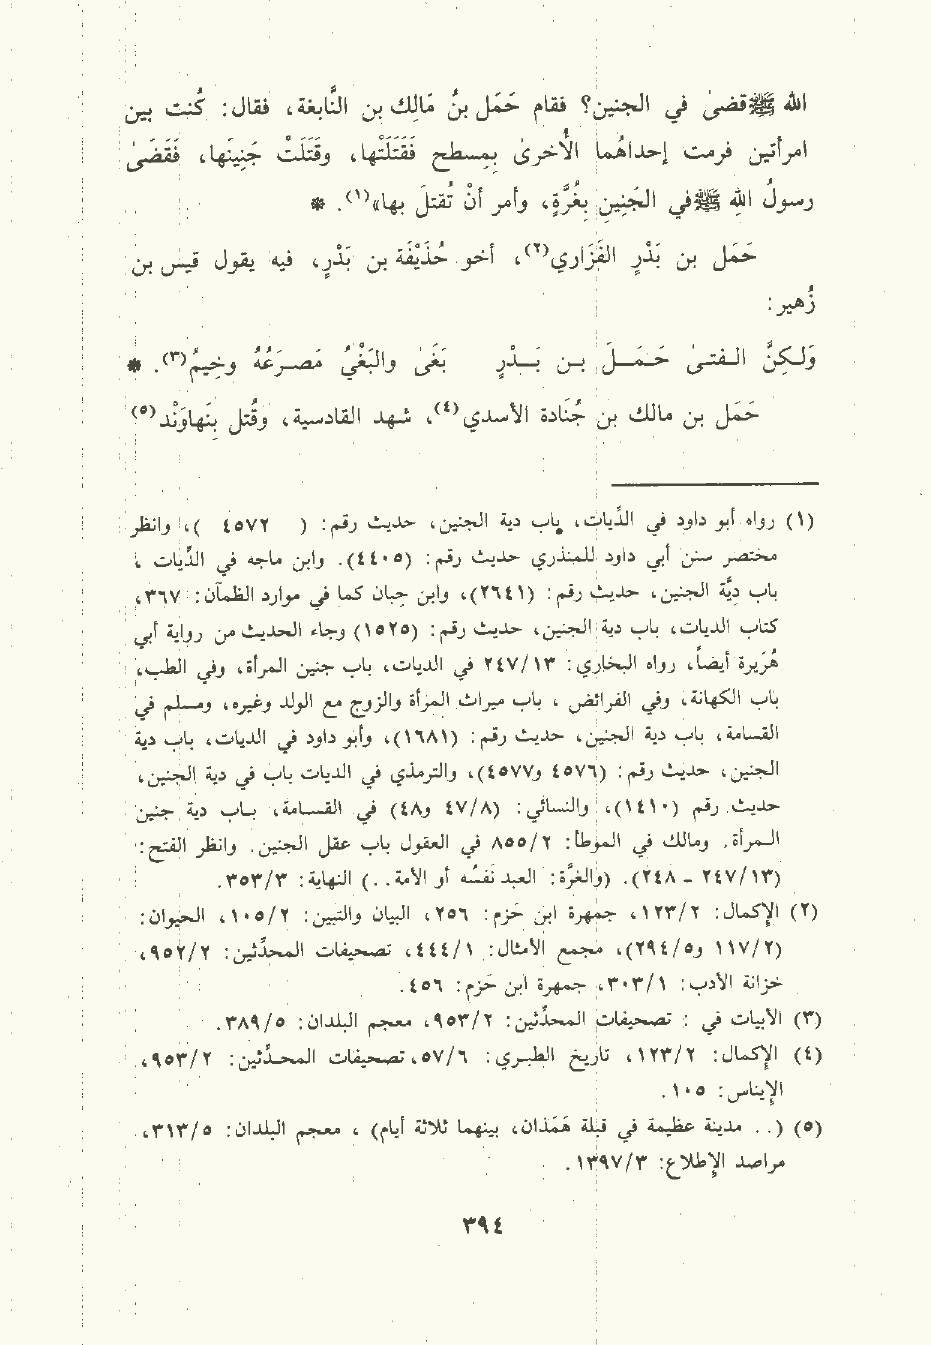 الله ﷺ قضىٰ في الجنين؟ فقام حَمَلُ بنُ مَالِك بن النَّابغة، فقال: كُنت بين
امرأتين فرمت إحداهُما الأُخرىٰ بِمسطح فَقَتَلَتْهَا، وقَتَلَتْ جَنِينَها، فَقَضَىٰ
رسولُ اللهِ ﷺ في الجَنِينِ بِغُرَّةٍ، وأمر أنْ تُقتلَ بها»(١). *
حَمَل بن بَدْرٍ الفَزَاري(٢)، أخو حُذَيْفَة بن بَدْرٍ، فيه يقول قيس بن
زُهير:
وَلـكِنَّ الـفتـىٰ حَـمَـلَ بـن بَـدْرٍ بَغَىٰ والبَغْيُ مَصـرَعُهُ وخِيمُ(٣). *
حَمَل بن مالك بن جُنَادة الأسدي(٤)، شهد القادسية، وقُتل بِنَهاوَنْد(٥)
(١) رواه أبو داود في الدِّيات، باب دية الجنين، حديث رقم: ( ٤٥٧٢ )، وانظر
مختصر سنن أبي داود للمنذري حديث رقم: (٤٤٠٥). وابن ماجه في الدِّيات ،
باب دِيَّة الجنين، حديث رقم: (٢٦٤١)، وابن حِبان كما في موارد الظمآن: ٣٦٧،
كتاب الديات، باب دية الجنين، حديث رقم: (١٥٢٥) وجاء الحديث من رواية أبي
هُرَيرة أيضاً، رواه البخاري: ٢٤٧/١٣ في الديات، باب جنين المرأة، وفي الطب،
باب الكهانة، وفي الفرائض ، باب ميراث المرأة والزوج مع الولد وغيره، ومسلم في
القسامة، باب دية الجنين، حديث رقم: (١٦٨١)، وأبو داود في الديات، باب دية
الجنين، حديث رقم: (٤٥٧٦ و٤٥٧٧)، والترمذي في الديات باب في دية الجنين،
حديث رقم (١٤١٠)، والنسائي: (٤٧/٨ و٤٨) في القسامة، باب دية جنين
المرأة. ومالك في الموطأ: ٨٥٥/٢ في العقول باب عقل الجنين. وانظر الفتح:
(٢٤٧/١٣ - ٢٤٨). (والغرَّة: العبد نفسُه أو الأمة..) النهاية: ٣٥٣/٣.
(٢) الإكمال: ١٢٣/٢، جمهرة ابن حَزم: ٢٥٦، البيان والتبيين: ١٠٥/٢، الحيوان:
(١١٧/٢ و٢٩٤/٥)، مجمع الأمثال: ٤٤٤/١، تصحيفات المحدِّثين: ٩٥٢/٢،
خزانة الأدب: ٣٠٣/١، جمهرة ابن حَزم: ٤٥٦.
(٣) الأبيات في : تصحيفات المحدِّثين: ٩٥٣/٢، معجم البلدان: ٣٨٩/٥.
(٤) الإكمال: ١٢٣/٢، تاريخ الطبري: ٥٧/٦، تصحيفات المحدِّثين: ٩٥٣/٢،
الإيناس: ١٠٥.
(٥) (.. مدينة عظيمة في قبلة هَمَذان، بينهما ثلاثة أيام) ، معجم البلدان: ٣١٣/٥،
مراصد الإطلاع: ١٣٩٧/٣.
٣٩٤